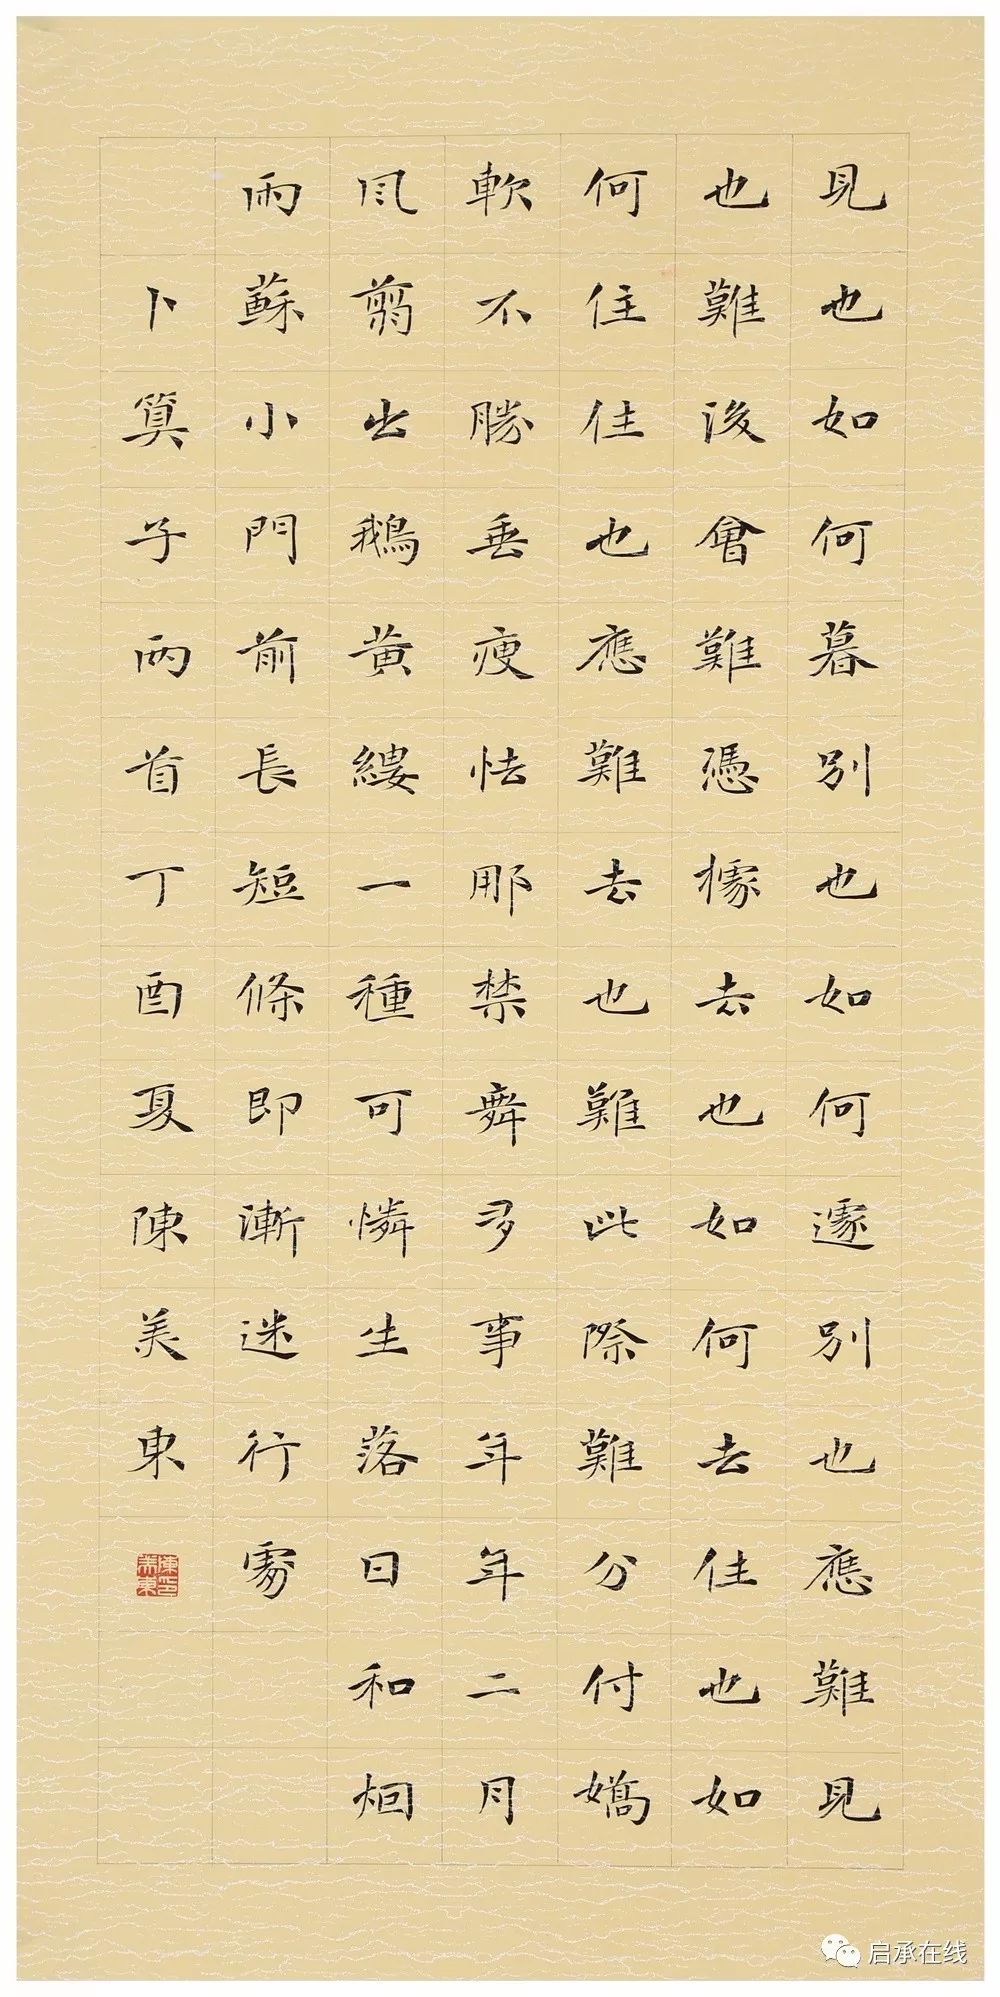 見也如何暮別也如何遽別也應難見
也難後會難憑據去也如何去住也如
何住住也應難去也難此際難分付嬌
軟不勝垂瘦怯那禁舞多事年年二月
風翦出鵝黃縷一種可憐生落日和烟
雨蘇小門前長短條即漸迷行處
卜算子兩首丁酉夏陳美東
陳美東印
启承在线